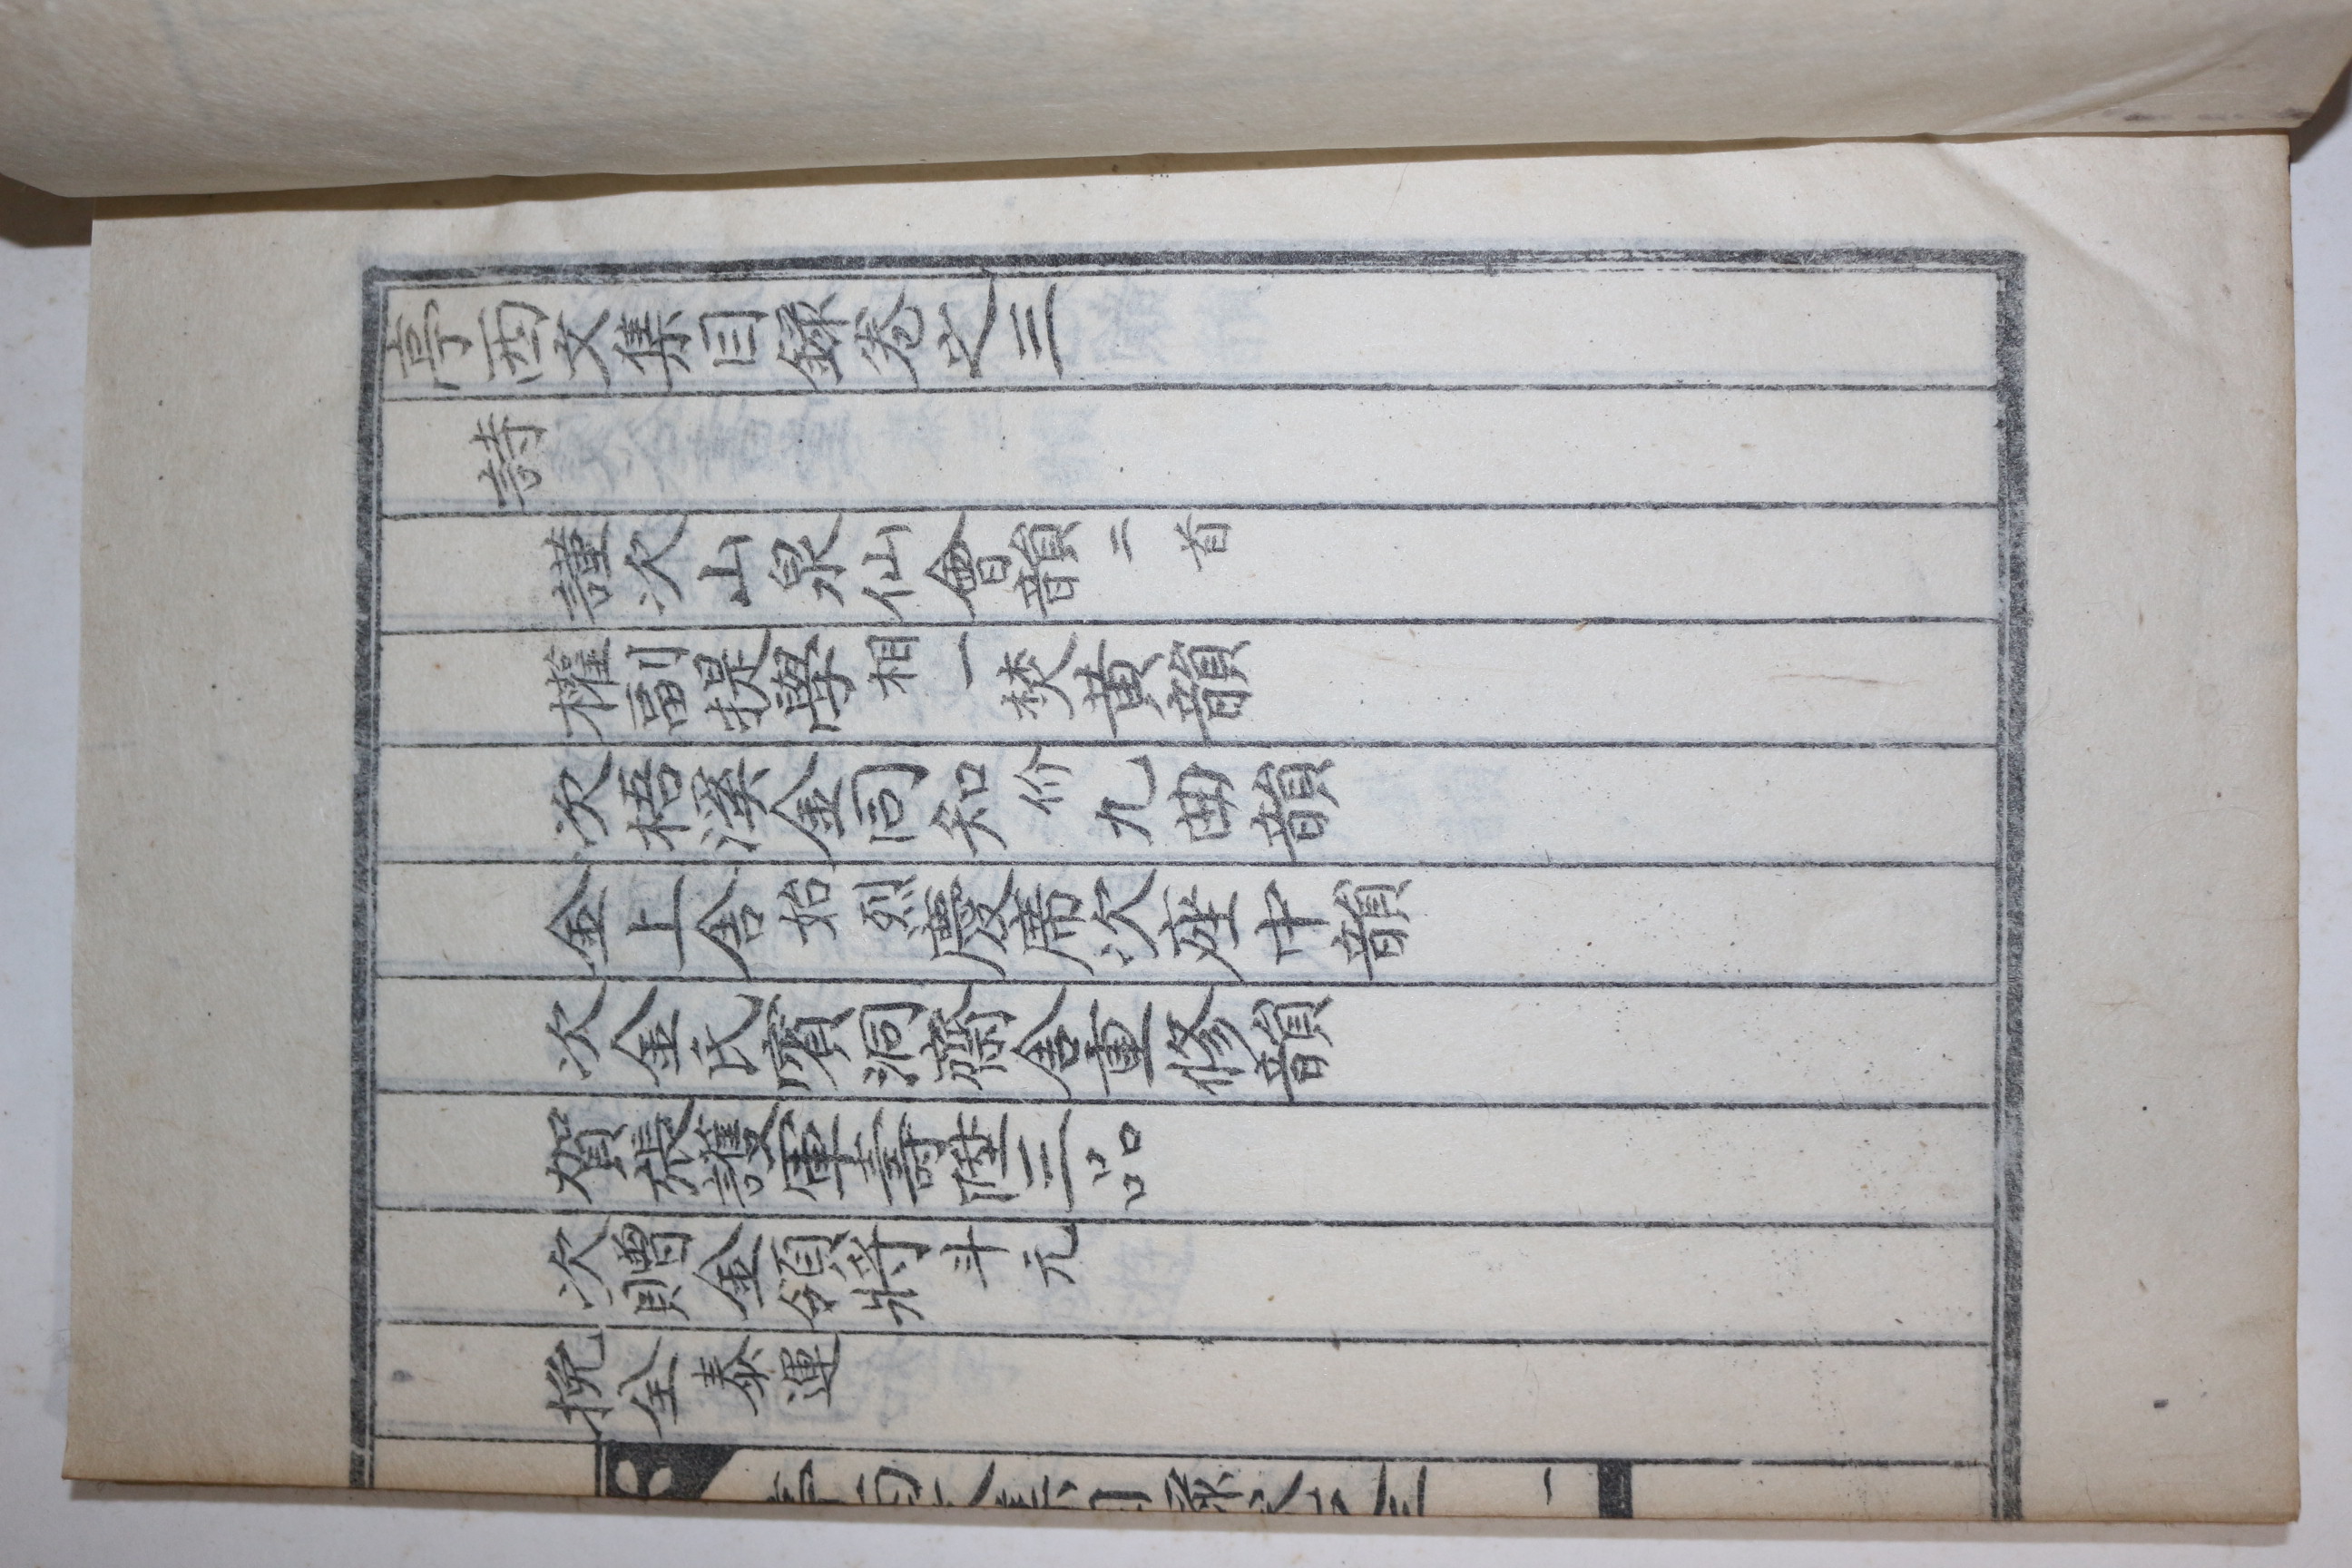 亭西文集目録卷之三
詩
謹次山泉仙會韻二首
權副提學相一焚黄韻
次梧溪金同知价九曲韻
金上舍始烈慶席次座中韻
次金氏賓洞齋舍重修韻
賀張護軍壽陞三品
次贈金領將斗元
挽全泰運
一